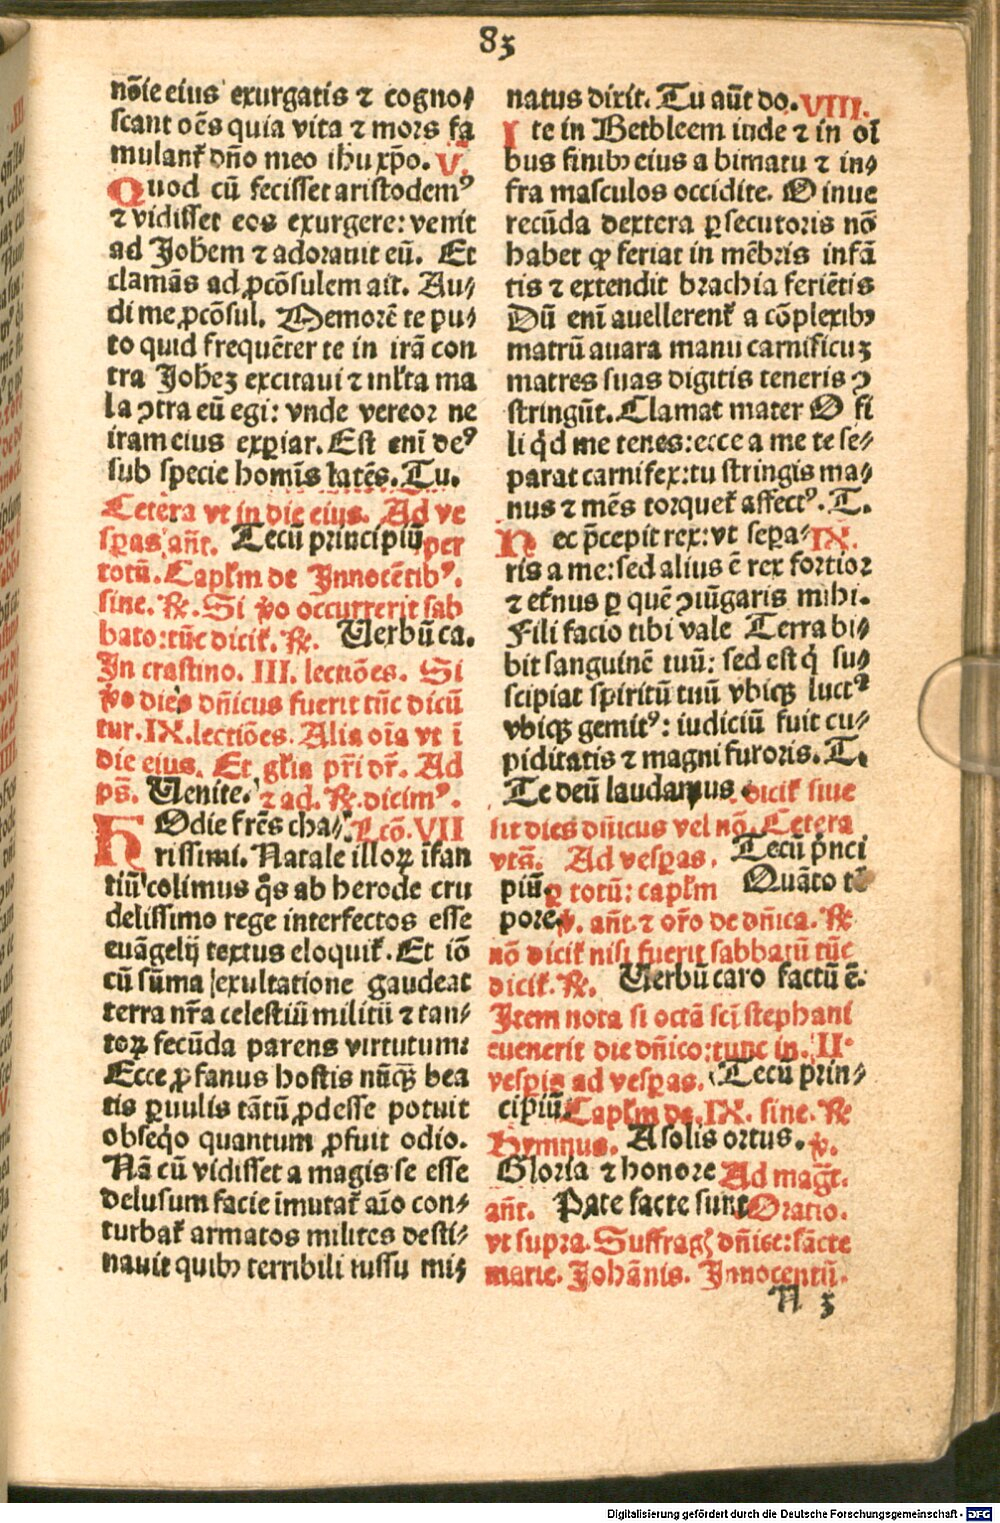 83
nōie eius exurgatis ⁊ cogno⸗
scant oēs quia vita ⁊ mors fa
mulant̄ dn̄o meo ihu xp̄o. V.
Quod cū fecisset aristodemꝰ
⁊ vidisset eos exurgere: venit
ad Johem ⁊ adorauit eū. Et
clamās ad ꝓcōsulem ait. Au⸗
di me ꝓcōsul. Memorē te pu⸗
to quid frequēter te in irā con
tra Johēꝫ excitaui ⁊ mlta ma
la ↄtra eū egi: vnde vereor ne
iram eius exꝑiar. Est enī deꝰ
sub specie homīs latēs. Tu.
Cetera vt in die eius. Ad ve
sꝑas an̄t. Tecū principiū per
totū. Capl̄m de Jnnocētibꝰ.
sine. ℞. Si ṽo occurrerit sab
bato: tūc dicit̄. ℞. Uerbū ca.
Jn crastino. III. lectiōes. Si
ṽo dies dn̄icus fuerit tūc dicū
tur. IX. lectiōes. Alia oīa vt ī
die eius. Et gl̄ia pr̄i dr̄. Ad
ps̄. Uenite. ⁊ ad. ℞. dicimꝰ.
HOdie frēs cha⸗ Lcō. VII
rissimi. Natale illoꝝ īfan
tiū colimus qͦs ab herode cru
delissimo rege interfectos esse
euāgelij textus eloquit̄. Et iō
cū sūma exultatione gaudeat
terra nr̄a celestiū militū ⁊ tan⸗
toꝝ fecūda parens virtutum:
Ecce ꝓfanus hostis nūqꝫ bea
tis ꝑuulis tātū ꝓdesse potuit
obseqͦo quantum ꝓfuit odio.
Nā cū vidisset a magis se esse
delusum facie īmutat̄ aīo con⸗
turbat̄ armatos milites desti⸗
nauit quibꝫ terribili iussu mi⸗
natus dixit. Tu aūt do. VIII.
Ite in Bethleem inde ⁊ in oī
bus finibꝫ eius a bimatu ⁊ in⸗
fra masculos occidite. O inue
recūda dextera ꝑsecutoris nō
habet ꝙ feriat in mēbris infā
tis ⁊ extendit brachia feriētis
Dū enī auellerent̄ a cōplexibꝫ
matrū auara manu carnificuꝫ
matres suas digitis teneris ↄ
stringūt. Clamat mater O fi
li qͥd me tenes: ecce a me te se⸗
parat carnifex: tu stringis ma⸗
nus ⁊ mēs torquet̄ affectꝰ. T.
Nec p̄cepit rex: vt sepa⸗ IX.
ris a me: sed alius ē rex fortior
⁊ et̄nus ꝑ quē ↄiūgaris mihi.
Fili facio tibi vale Terra bi⸗
bit sanguinē tuū: sed est qͥ su⸗
scipiat spiritū tuū vbiqꝫ luctꝰ
vbiqꝫ gemitꝰ: iudiciū fuit cu⸗
piditatis ⁊ magni furoris. T.
Te deū laudamus. dicit̄ siue
sit dies dn̄icus vel nō. Cetera
vts̄. Ad vesꝑas. Tecū p̄nci
piū. ꝑ totū: capl̄m Quāto tē
pore. ꝟ. an̄t. ⁊ or̄o de dn̄ica. ℞
nō dicit̄ nisi fuerit sabbatū tūc
dicit̄. ℞. Uerbū caro factū ē.
Jtem nota si octā sci̅ stephani
euenerit die dn̄ico: tunc in. II.
vesꝑis ad vesꝑas. Tecū prin⸗
cipiū. Capl̄m de. IX. sine. ℞
Hymnus. A solis ortus. ꝟ.
Gloria ⁊ honore Ad magt̄.
an̄t. Pate facte sunt Oratio.
vt supra. Suffragꝭ dn̄ice: sācte
marie. Johānis. Jnnocentū.
N 3
Digitalisierung gefördert durch die Deutsche Forschungsgemeinschaft - DFG